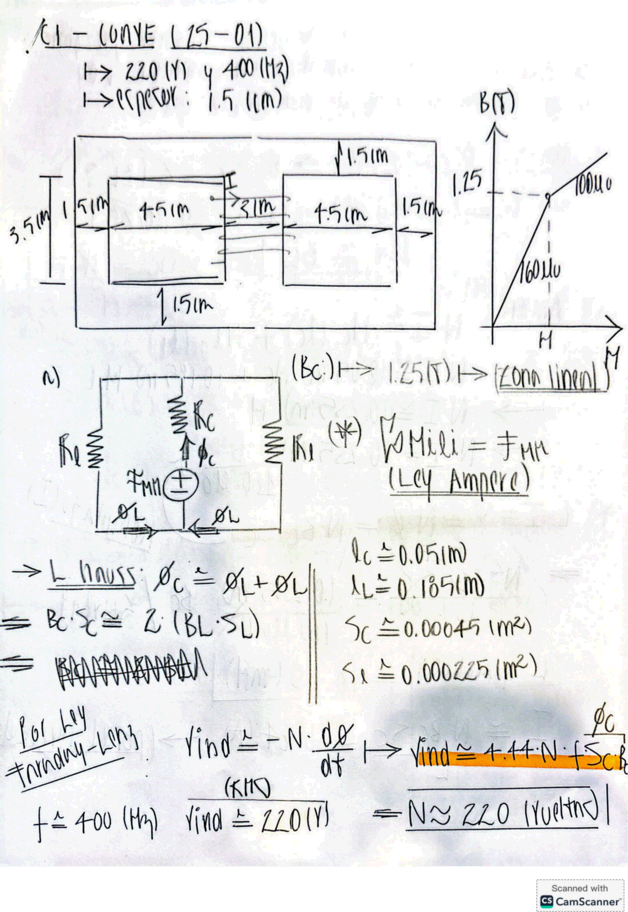 C1 - CONVE (25-01)
↦ 220 (V) y 400 (Hz)
↦ espesor: 1.5 (cm)
B(T)
1.5cm
1.25
100μo
3.5cm
1.5cm
4.5cm
I
3cm
4.5cm
1.5cm
160μo
1.5cm
H
H
a) (Bc) ↦ 1.25(T) ↦ (zona lineal)
Rl
Rc
φc
FMM
Rl
φL
φL
(*) ΣHili = FMM
(Ley Ampere)
→ L Gauss: φc ≅ φL + φL
= Bc·Sc ≅ 2·(BL·SL)
=
lc ≅ 0.05(m)
lL ≅ 0.185(m)
Sc ≅ 0.00045 (m²)
Sl ≅ 0.000225 (m²)
Por Ley
Faraday-Lenz
Vind ≅ - N· dφ/dt ↦ Vind ≅ 4.44·N·f Sc B
φc
f ≅ 400 (Hz)
(RMS)
Vind ≅ 220(V)
= N ≈ 220 (vueltas)
Scanned with
CS CamScanner